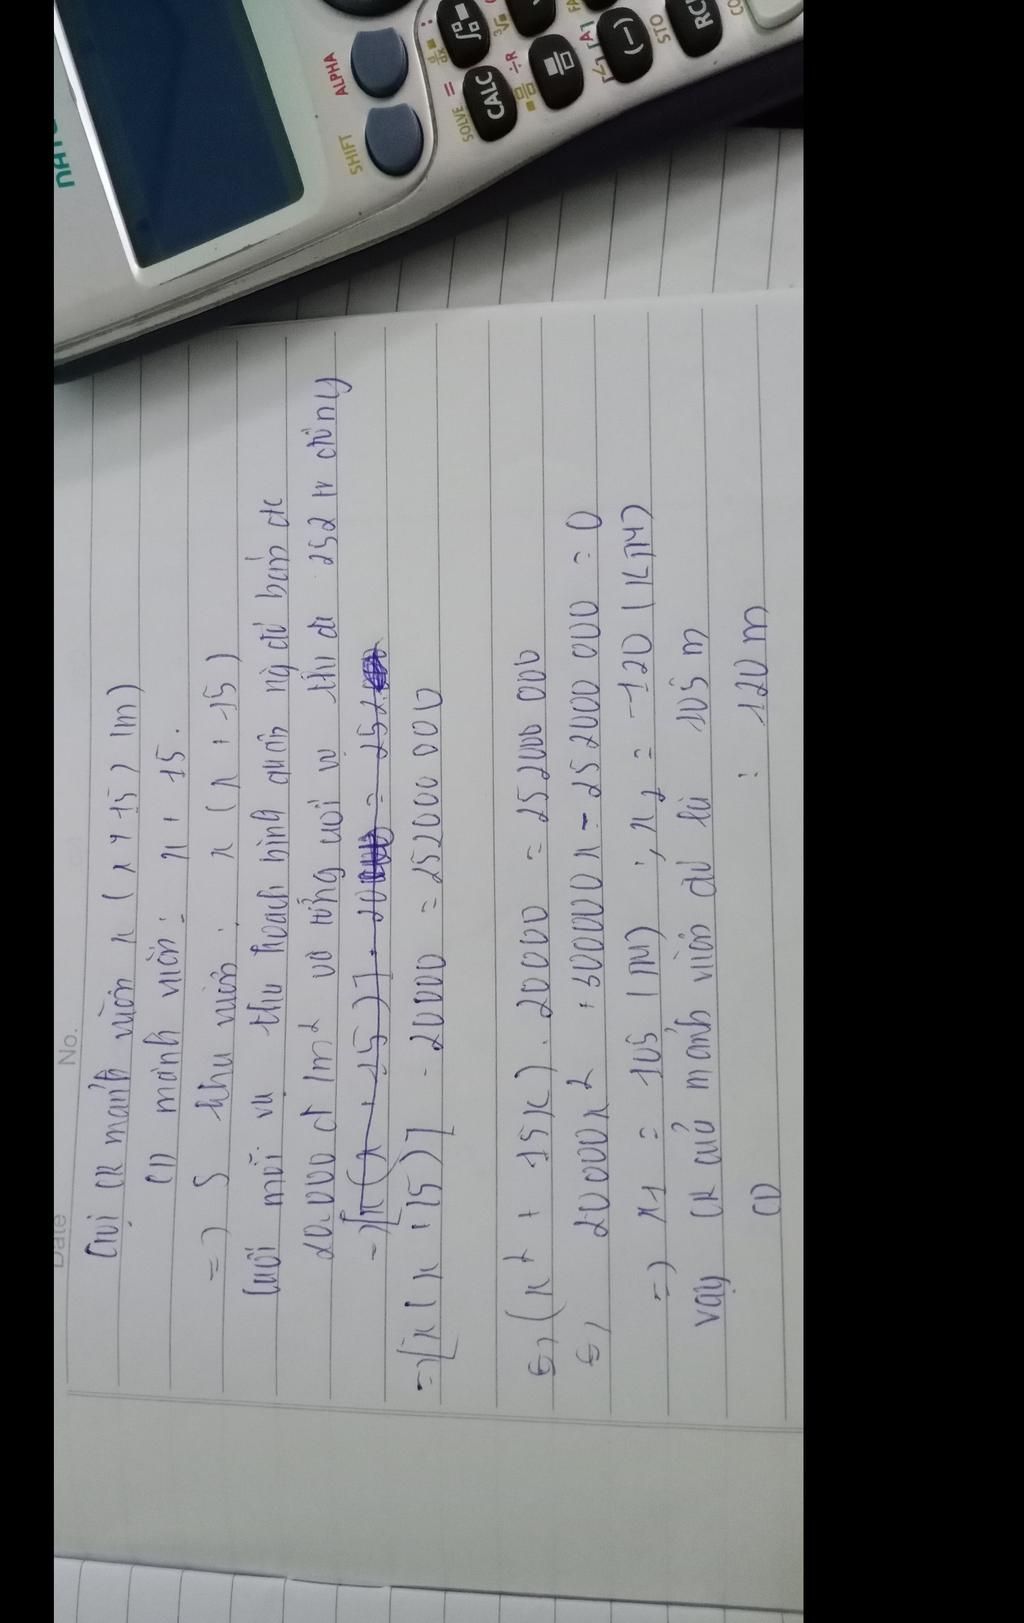 Date No.
Gọi CR mảnh vườn x ( x > 15 ) (m)
CD mảnh vườn : x + 15.
=> S khu vườn : x ( x + 15 )
Cuối mỗi vụ thu hoạch bình quân ng đó bán đc
20.000 đ 1m² và tổng cuối vụ thu đc 252 tr đồng
=> [x ( x + 15 )] . 20000 = 252
=> [x ( x + 15 )] . 20000 = 252000 000
<=> ( x² + 15x ) . 20000 = 252000 000
<=> 20000x² + 300000x - 252000 000 = 0
=> x1 = 105 (TM) ; x2 = -120 (KTM)
vậy CR của mảnh vườn đó là 105 m
CD : 120 m
SHIFT
ALPHA
SOLVE =
CALC
STO
RCL
(-)
[A]
÷R